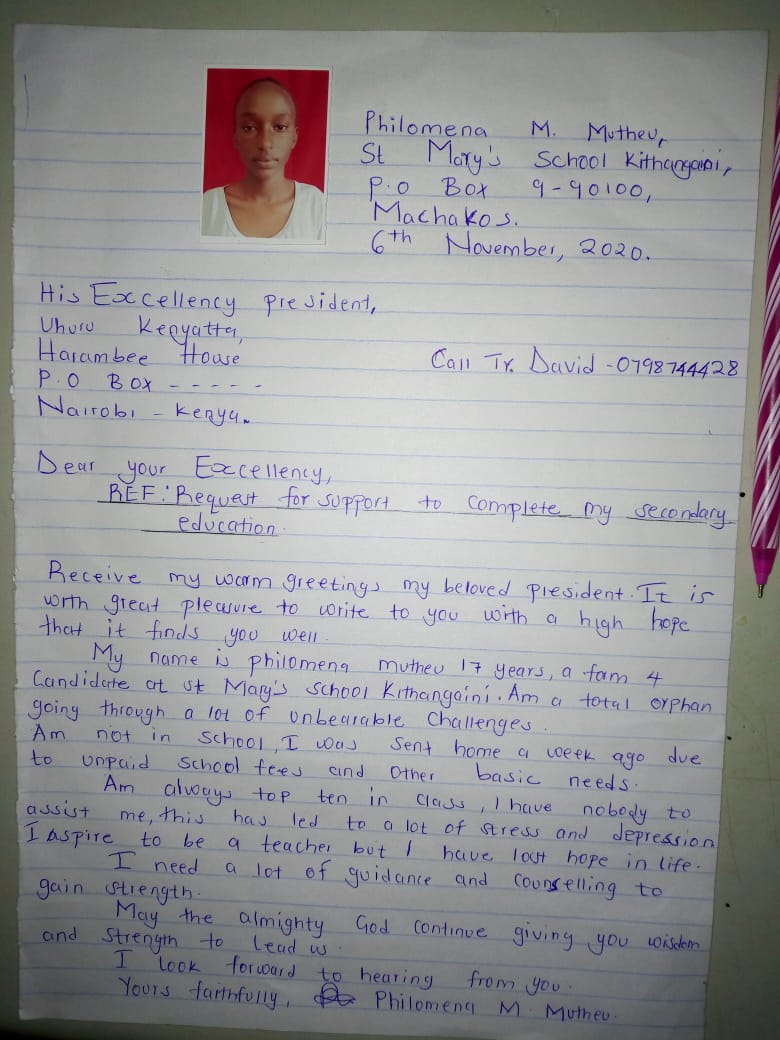 Philomena M. Mutheu,
St Mary's School Kithangaini,
P.o Box 9-90100,
Machakos.
6th November, 2020.
His Excellency president,
Uhuru Kenyatta,
Harambee House
P.O BOX - - - - -
Nairobi - Kenya.
Call Tr. David - 0798744428
Dear your Excellency,
REF: Request for support to complete my secondary
education.
Receive my warm greetings my beloved president. It is
with great pleasure to write to you with a high hope
that it finds you well.
My name is philomena mutheu 17 years, a form 4
Candidate at st Mary's school Kithangaini. Am a total orphan
going through a lot of unbearable challenges.
Am not in school, I was sent home a week ago due
to unpaid school fees and other basic needs.
Am always top ten in class, I have nobody to
assist me, this has led to a lot of stress and depression
I aspire to be a teacher but I have lost hope in life.
I need a lot of guidance and counselling to
gain strength.
May the almighty God continue giving you wisdom
and strength to lead us.
I look forward to hearing from you.
Yours faithfully, Philomena M. Mutheu.